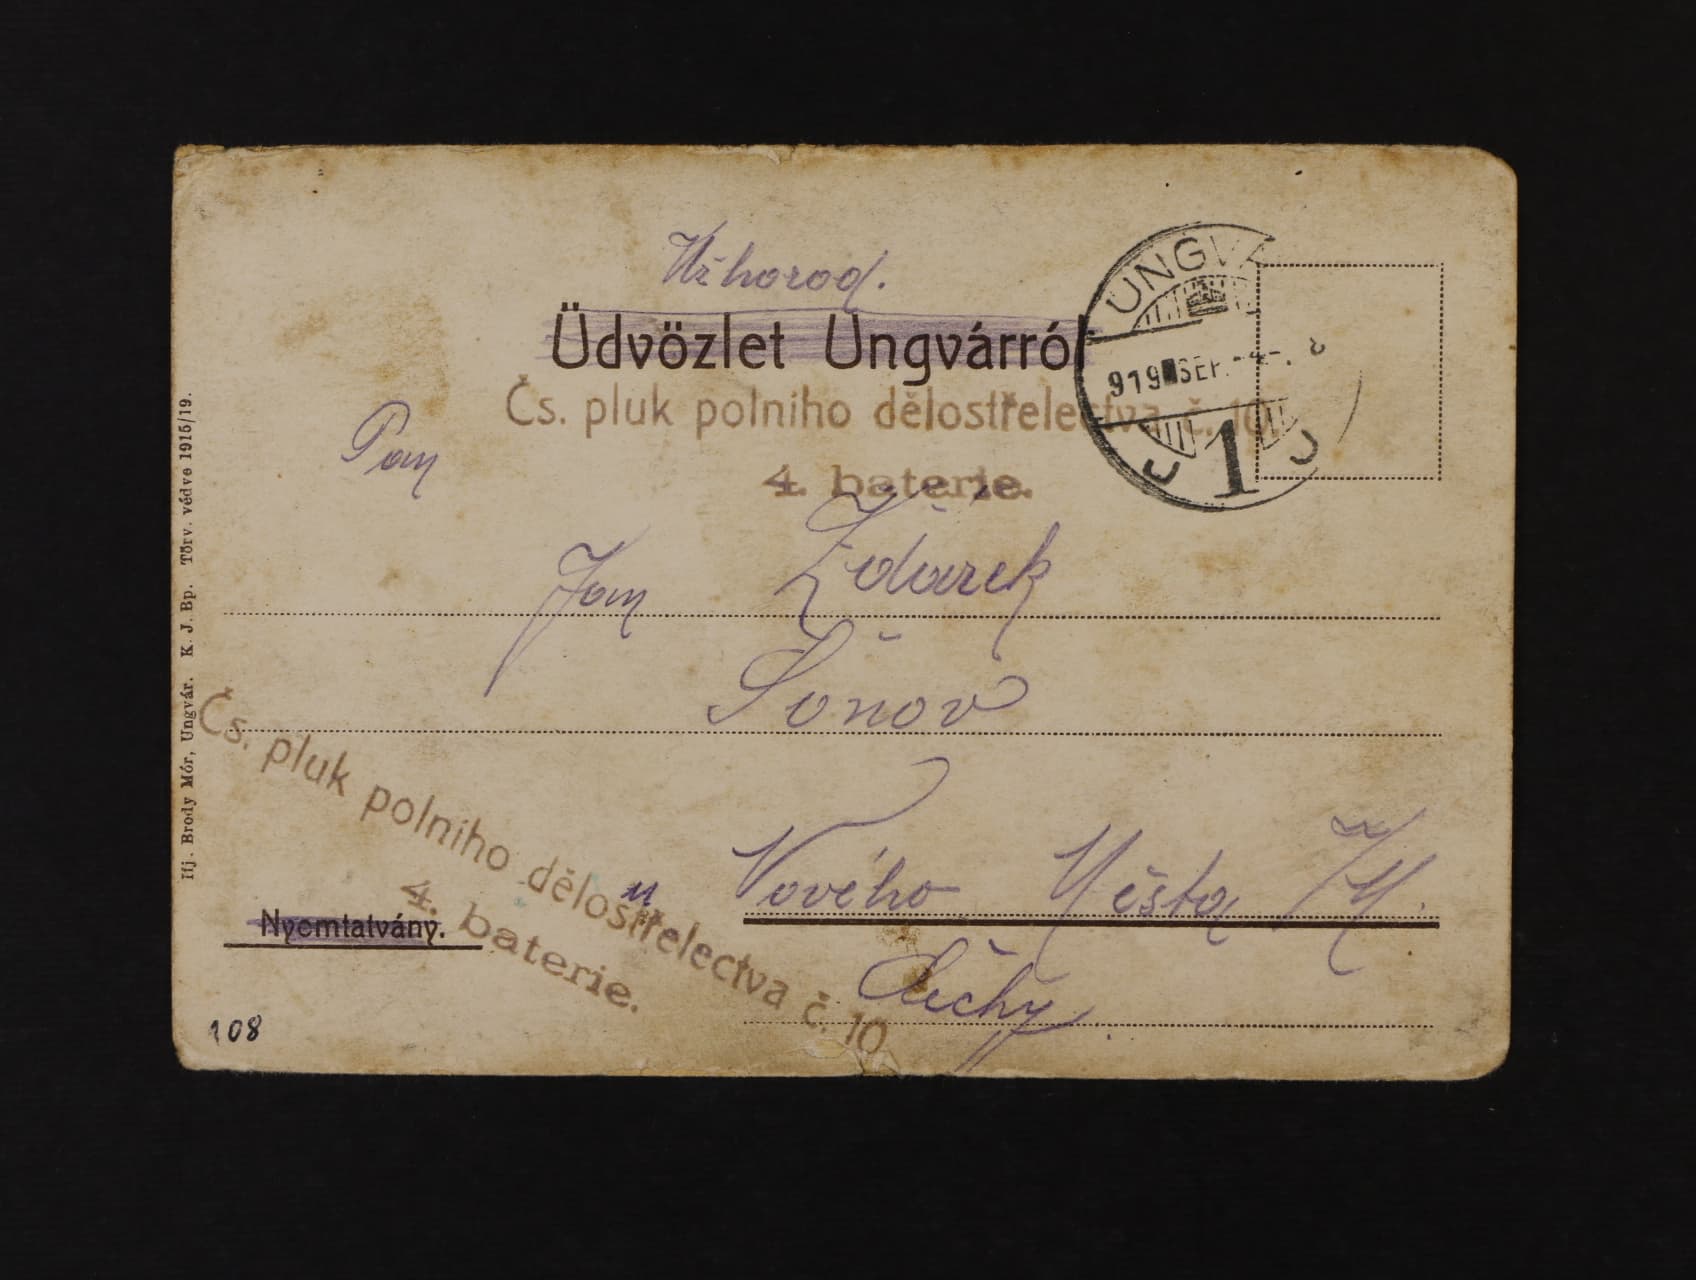 Užhorod.
Üdvözlet Ungvárról
UNGV
919 SEP. -4-. 8
1
Čs. pluk polního dělostřelectva č. 10.
4. baterie.
Pan
Jan Žďárek
Šonov
Nového Města
Čechy.
Čs. pluk polního dělostřelectva č. 10
4. baterie.
Nyomtatvány.
108
Ifj. Brody Mór, Ungvár. K. J. Bp. Törv. védve 1915/19.